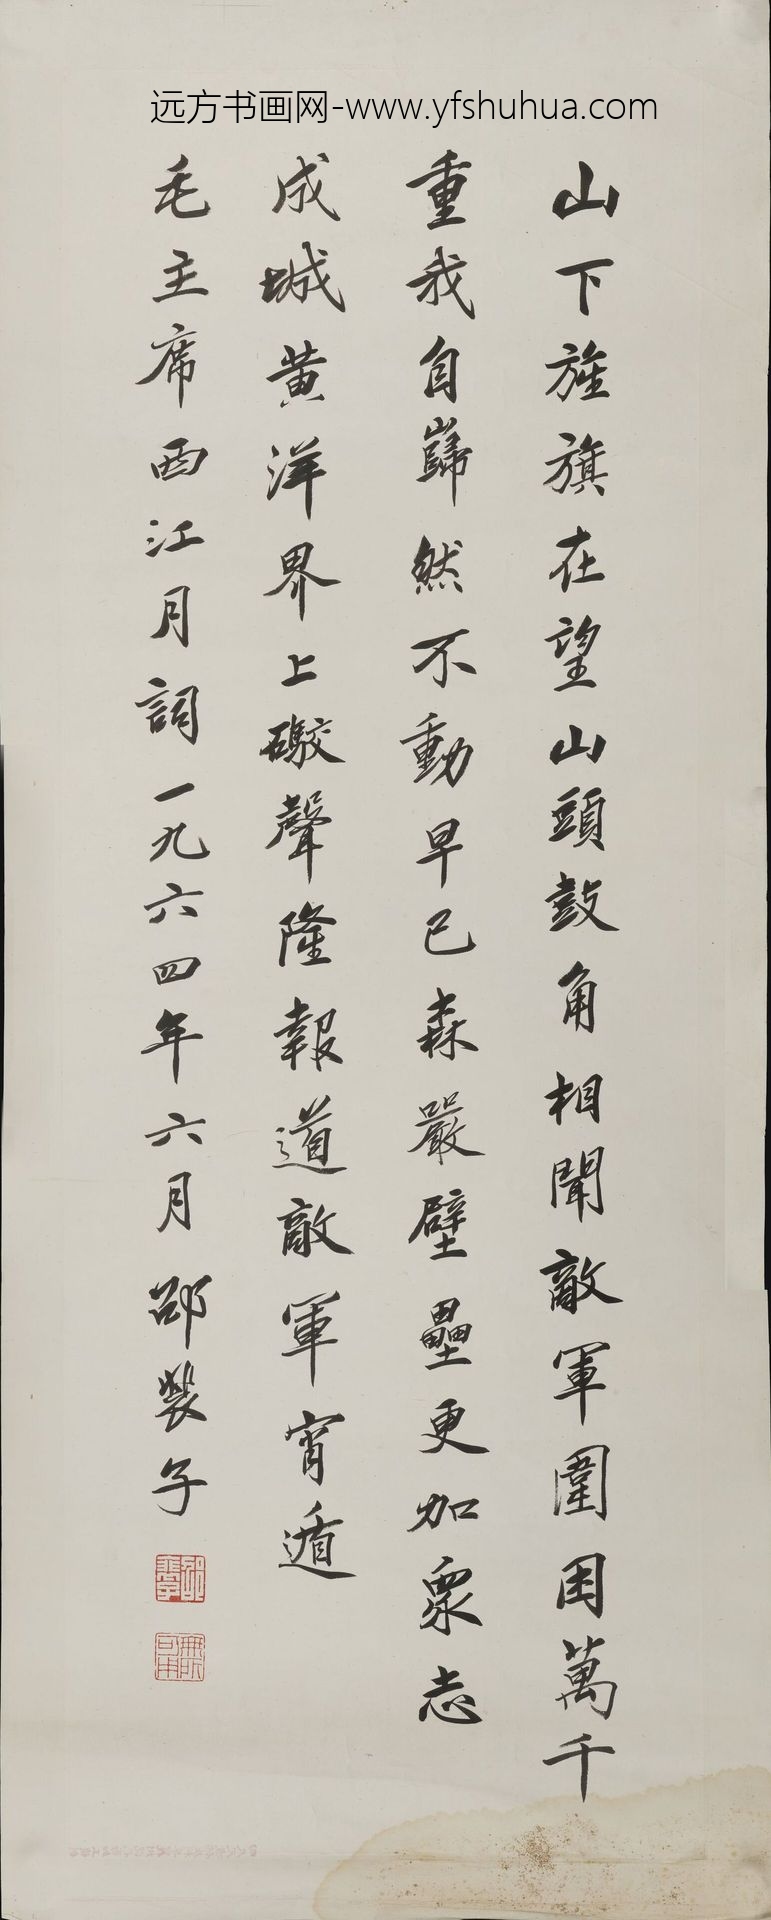 远方书画网-www.yfshuhua.com
山下旌旗在望山頭鼓角相聞敵軍圍困萬千
重我自巋然不動早已森嚴壁壘更加眾志
成城黄洋界上礮聲隆報道敵軍宵遁
毛主席西江月詞一九六四年六月邵裴子
邵裴子
無所可用